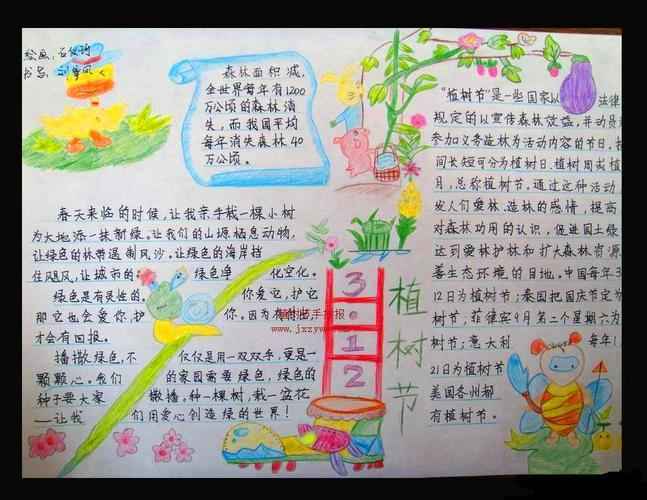 绘画:
书写:
森林面积减,
全世界每年有1200
万公顷的森林消
失,而我国平均
每年消失森林40
万公顷。
春天来临的时候,让我亲手栽一棵小树
为大地添一抹新绿。让我们的山塬栖息动物,
让绿色的林带遏制风沙。让绿色的海岸挡
住飓风,让城市的 绿色净化空化。
绿色是有灵性的, 你爱它,护它
那它也会爱你,护 你。因为
才会有回报。
播撒绿色,不仅仅是用一双双手,更是一
颗颗心。我们的家园需要绿色,绿色的
种子要大家撒播。种一棵树,栽一盆花
——让我们用爱心创造绿的世界!
3.12
植树节
"植树节"是一些国家以法律
规定的以宣传森林效益,并动员
参加义务造林为活动内容的节日,按
间长短可分为植树日、植树周或植
月,总称植树节。通过这种活动
发人们爱林、造林的感情,提高
对森林功用的认识,促进国土绿
达到爱林护林和扩大森林资源
善生态环境的目地。中国每年3
12日为植树节;泰国把国庆节定为
树节;菲律宾9月第二个星期六为
树节;意大利 每年1
21日为植树节
美国各州都
有植树节。